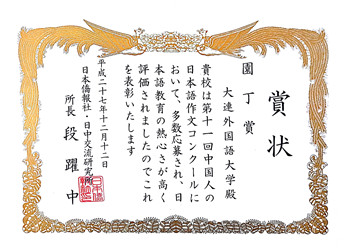 賞状
園丁賞
大連外国語大学殿
貴校は第十一回中国人の
日本語作文コンクールに
おいて、多数応募され、日
本語教育の熱心さが高く
評価されましたのでこれ
を表彰いたします
平成二十七年十二月十二日
日本僑報社・日中交流研究所
所長 段躍中